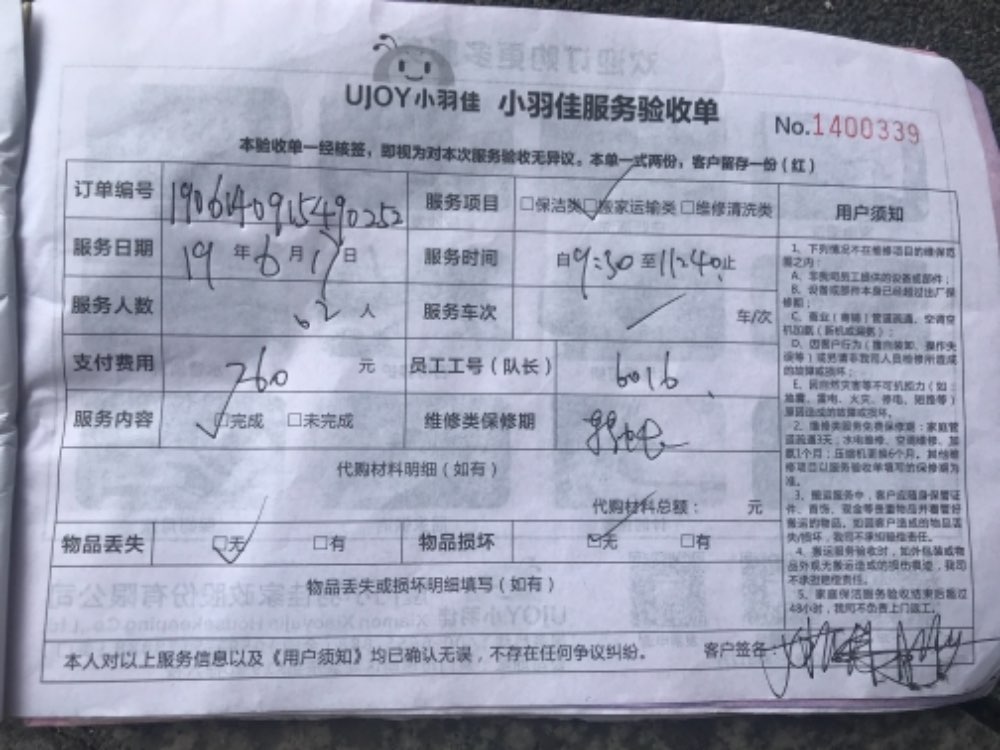 UJOY小羽佳 小羽佳服务验收单
No.1400339
本验收单一经核签，即视为对本次服务验收无异议。本单一式两份，客户留存一份（红）
订单编号 190614091549025​2 服务项目 □保洁类 □搬家运输类 □维修清洗类 用户须知
服务日期 19年6月17日 服务时间 自9:30至11:40止
服务人数 2人 服务车次 车/次
支付费用 760元 员工工号（队长） 6016
服务内容 □完成 □未完成 维修类保修期
代购材料明细（如有）
代购材料总额： 元
物品丢失 □无 □有 物品损坏 □无 □有
物品丢失或损坏明细填写（如有）
本人对以上服务信息以及《用户须知》均已确认无误，不存在任何争议纠纷。 客户签名：
1、下列情况不在维修项目的维保范
围之内：
A、非我司员工提供的设备或部件；
B、设备或部件本身已经超过出厂保
修期；
C、商业（商铺）管道疏通、空调空
机加氨（新机或漏氨）；
D、因客户行为（擅自装卸、操作失
误等）或另请非我司人员检修所造成
的故障或损坏；
E、因自然灾害等不可抗力（如：
地震、雷电、火灾、停电、短路等）
原因造成的故障或损坏。
2、维修类服务免费保修期：家庭管
道疏通3天，水电维修、空调维修、加
氨1个月；压缩机更换6个月。其他维
修项目以服务验收单填写的保修期为
准。
3、搬运服务中，客户应随身保管证
件、首饰、现金等贵重物品并看管好
搬运的物品。如因客户造成的物品丢
失/损坏，我司不承担赔偿责任。
4、搬运服务验收时，如外包装或物
品外观无搬运造成的损伤痕迹，我司
不承担赔偿责任。
5、家庭保洁服务验收结束后超过
48小时，我司不负责上门返工。